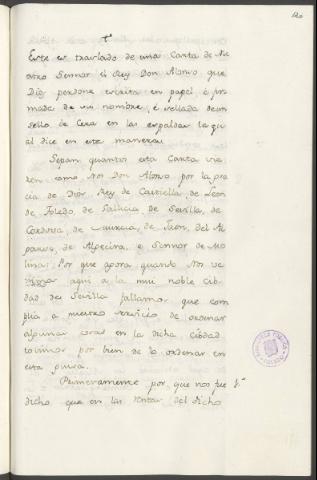 Este es traslado de una Carta de Nu
estro Sennor el Rey Don Alonso que
Dios perdone escrita en papel é fir
mada de su nombre, é sellada de un
sello de Cera en las espaldas la qu
al dice en esta manera:
Sepan quantos esta Carta vie
ren como Nos Don Alonso por la gra
cia de Dios Rey de Castiella de Leon
de Toledo, de Gallicia de Sevilla, de
Cordova, de Murcia, de Jaen, del Al
garve, de Algecira, e Sennor de Mo
lina: Por que agora quando Nos ve
aqui a la mui noble Cib
dad de Sevilla fallamos que com
plia a nuestro servicio de ordenar
algunas cosas en la dicha cibdad
toviemos por bien de lo ordenar en
esta guisa.
Primeramente por que nos fue
dicho que en las rentas del dicho